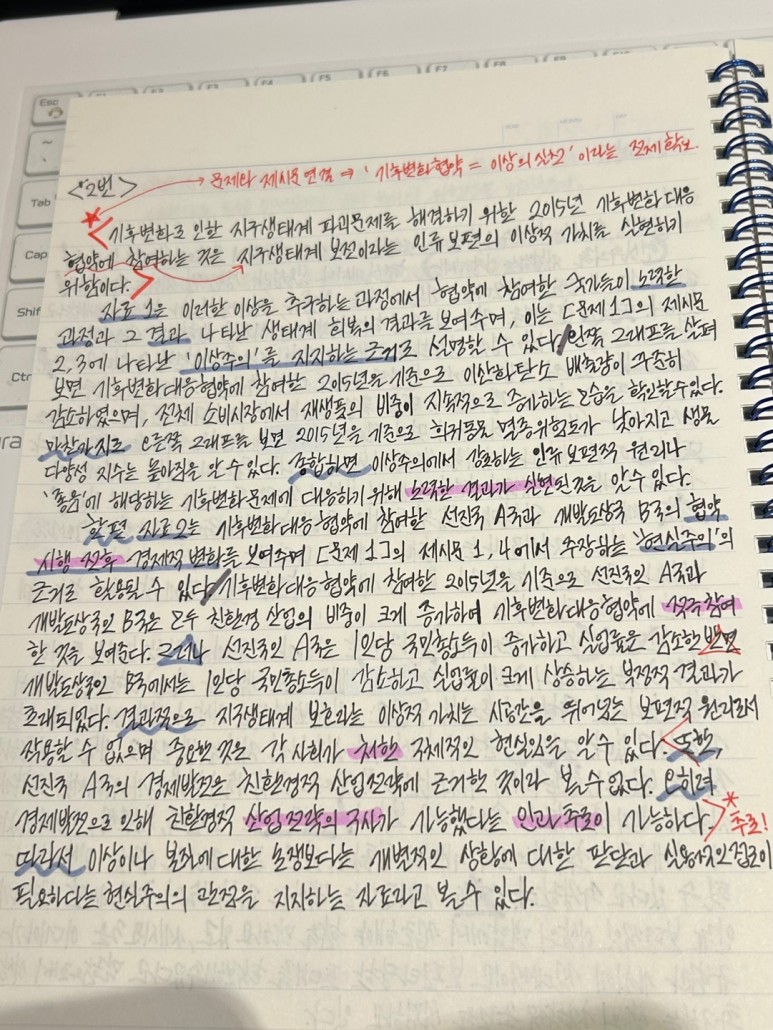 Esc
F3
F4
F5
F6
F7
F8
F9
Tab
Cap
Shif
Ctr
→ 문제와 제시문 연결 ⇒ '기후변화협약 = 이상의 실천' 이라는 전제 확보.
<2번>
기후변화로 인한 지구생태계 파괴문제를 해결하기 위한 2015년 기후변화 대응
협약에 참여하는 것은 지구생태계 보전이라는 인류 보편의 이상적 가치를 실현하기
위함이다.
자료 1은 이러한 이상을 추구하는 과정에서 협약에 참여한 국가들이 노력한
과정과 그 결과 나타난 생태계 회복의 결과를 보여주며, 이는 [문제 1]의 제시문
2, 3에 나타난 '이상주의'를 지지하는 근거로 설명할 수 있다. 왼쪽 그래프를 살펴
보면 기후변화대응협약에 참여한 2015년을 기준으로 이산화탄소 배출량이 꾸준히
감소하였으며, 전체 소비시장에서 재생품의 비중이 지속적으로 증가하는 모습을 확인할 수 있다.
마찬가지로 오른쪽 그래프를 보면 2015년을 기준으로 희귀동물 멸종위험도가 낮아지고 생물
다양성 지수는 높아짐을 알 수 있다. 종합하면 이상주의에서 강조하는 인류 보편적 원리나
'좋음'에 해당하는 기후변화문제에 대응하기 위해 노력한 결과가 실현된 것을 알 수 있다.
한편 자료 2는 기후변화대응협약에 참여한 선진국 A국과 개발도상국 B국의 협약
시행 전후 경제적 변화를 보여주며 [문제 1]의 제시문 1, 4에서 주장하는 '현실주의'의
근거로 활용될 수 있다. 기후변화대응 협약에 참여한 2015년을 기준으로 선진국인 A국과
개발도상국인 B국은 모두 친환경 산업의 비중이 크게 증가하여 기후변화대응협약에 적극 참여
한 것을 보여준다. 그러나 선진국인 A국은 1인당 국민총소득이 증가하고 실업률은 감소한 반면
개발도상국인 B국에서는 1인당 국민총소득이 감소하고 실업률이 크게 상승하는 부정적 결과가
초래되었다. 결과적으로 지구생태계 보호라는 이상적 가치는 시공간을 뛰어넘는 보편적 원리로서
작용할 수 없으며 중요한 것은 각 사회가 처한 구체적인 현실임을 알 수 있다. 또한,
선진국 A국의 경제발전은 친환경적 산업전략에 근거한 것이라 볼 수 없다. 오히려
경제발전으로 인해 친환경적 산업 전략의 구사가 가능했다는 인과 추론이 가능하다.
* 추론!
따라서 이상이나 본질에 대한 논쟁보다는 개별적인 상황에 대한 판단과 실용적인 접근이
필요하다는 현실주의의 관점을 지지하는 자료라고 볼 수 있다.